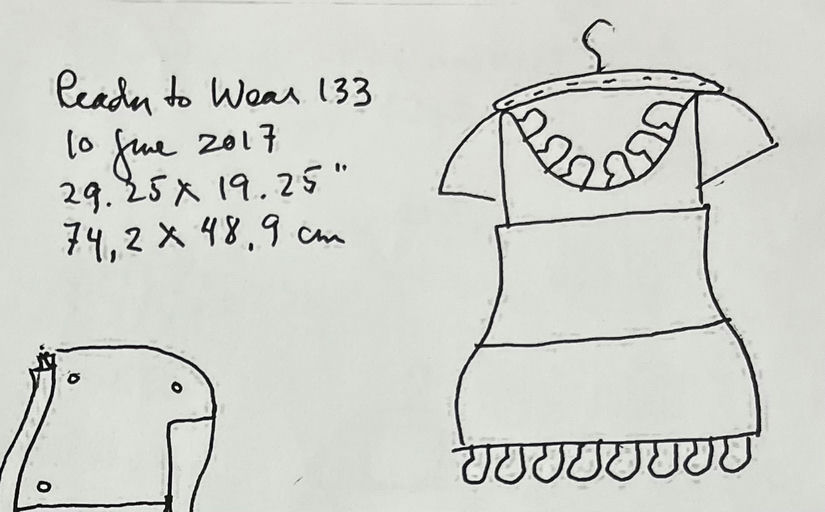 Ready to Wear 133
10 June 2017
29.25 x 19.25"
74,2 x 48,9 cm